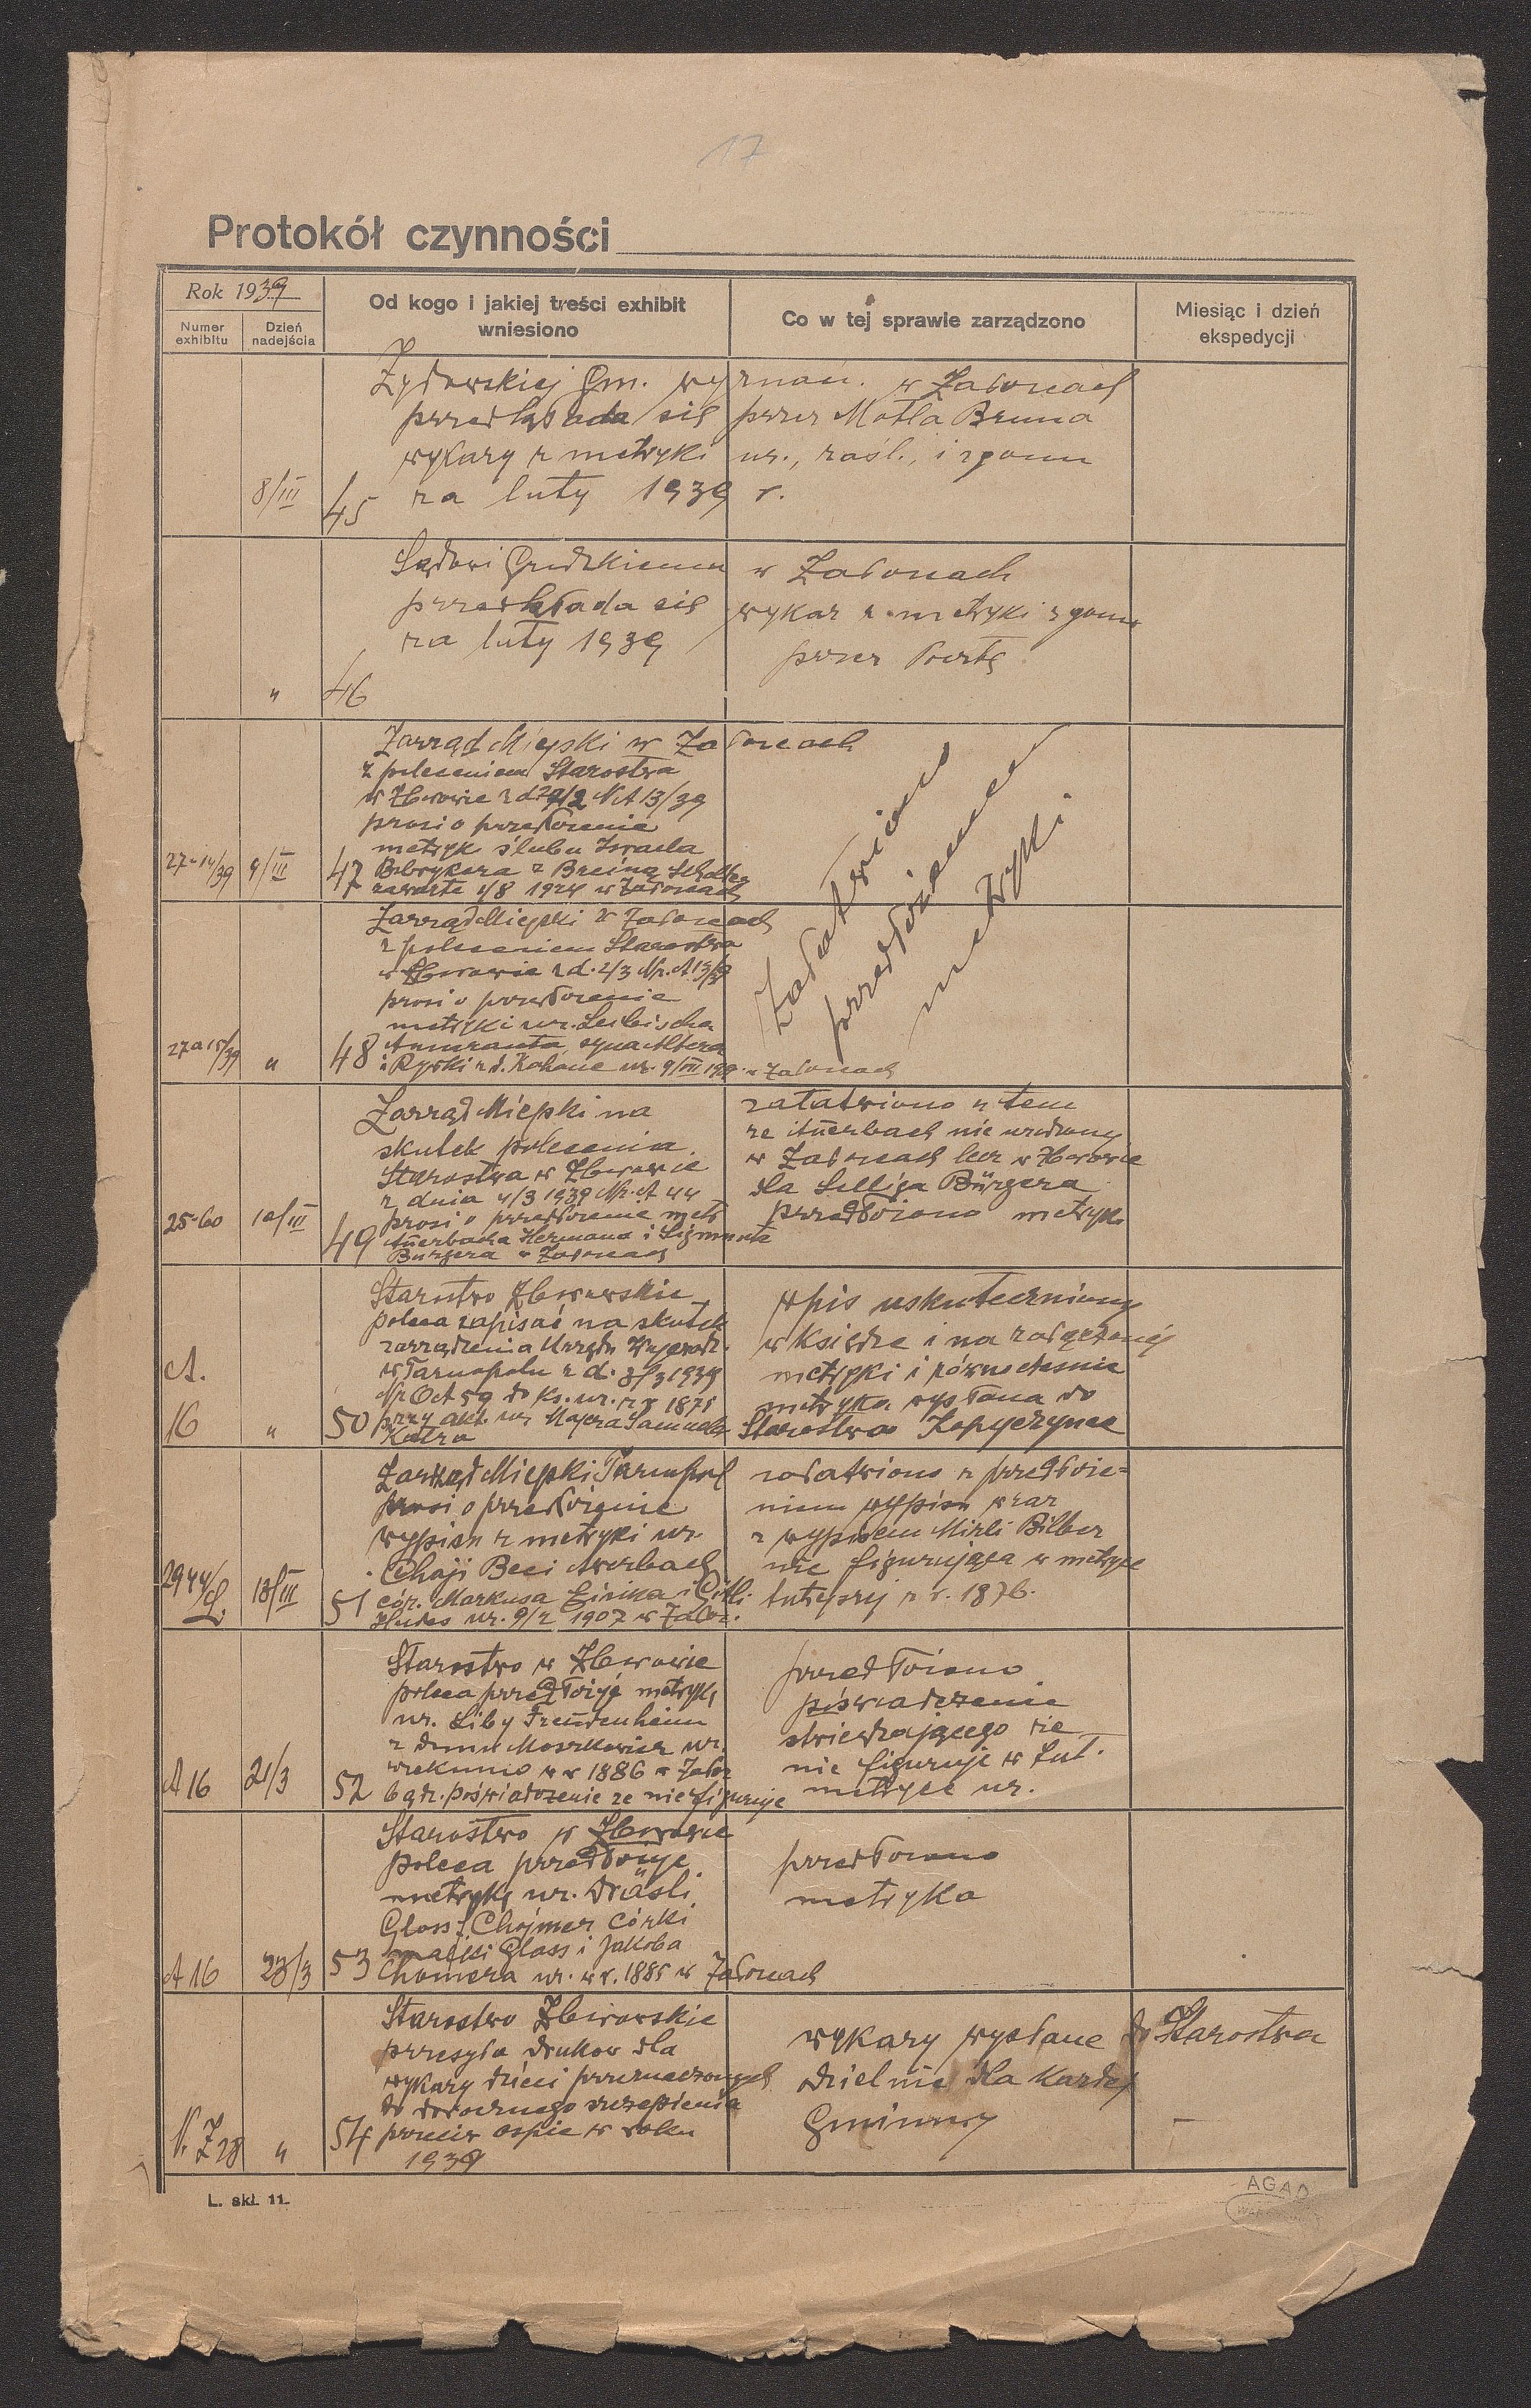 17
Protokół czynności
Rok 1939
Numer exhibitu
Dzień nadejścia
Od kogo i jakiej treści exhibit wniesiono
Co w tej sprawie zarządzono
Miesiąc i dzień ekspedycji
8/III
45
Żydowskiej Gm. wyznań. w Załoscach
przedkłada się przez Motla Bruna
wykazy z metryki ur., zaśl., i zgonu
za luty 1939 r.
"
46
Sądowi Grodzkiemu w Załoscach
przedkłada się wykaz z metryki zgonu
za luty 1939
przez
27a 14/39
9/III
47
Zarząd Miejski w Załoscach
z poleceniem Starostwa
w Zborowie z d 27/2 N A 13/39
prosi o przedłożenie
metryk ślubu Izraela
zawarta 1/8 1924 w Załoscach
Załatwiono
przedłożeniem
metryki
27a 15/39
"
48
Zarząd Miejski w Załoscach
z poleceniem Starostwa
w Zborowie z d. 2/3 Nr. A 13/39
prosi o przedłożenie
metryki ur. Leibischa
syna Altera
i Ryfki z d. Kahane ur. 9/III w Załoscach
25-60
10/III
49
Zarząd Miejski na
skutek polecenia
Starostwa w Zborowie
z dnia 4/3 1939 Nr. A 44
prosi o przedłożenie metr
Auerbacha Hermana i Sigmunta
Burgera w Załoscach
załatwiono z tem
że Auerbach nie urodzony
w Załoscach lecz w Zborowie
dla Bürgera
przedłożono metrykę
A.
16
"
50
Starostwo Zborowskie
poleca zapisać na skutek
zarządzenia Urzędu Wojewódz.
w Tarnopolu z d. 3/3 1939
Np O A 59 do ks. ur. z r 1875
przy akt. ur Majera Samuela
Katza
wpis uskuteczniony
w księdze i na załączonej
metryki i równocześnie
metryka wysłana do
Starostwa Kopyczynce
2944/L
18/III
51
Zarząd Miejski Tarnopol
prosi o przedłożenie
wypisu z metryki ur.
Chaji Beci Averbach
cór. Markusa i Gitli
Hudes ur. 9/2 1907 w Załoz.
załatwiono z przedłoże-
niem wypisu wraz
z wypisem Mirli Bilber
nie figurująca w metryce
tutejszej z r. 1876.
A 16
21/3
52
Starostwo w Zborowie
poleca przedłożyć metrykę
ur. Liby Freudenheim
z domu Moszkowicz ur.
w r 1886 w Załoz
bądz. poświadczenie ze nie figuruje
przedłożono
poświadczenie
stwierdzającego że
nie figuruje w tut.
metryce ur.
A 16
23/3
53
Starostwo w Zborowie
poleca przedłożyć
metrykę ur. Dräsli
Glass f. Chojmer córki
Glass i Jakoba
Chomera ur. w r. 1885 w Załoscach
przedłożono
metryka
N. Z 28
"
54
Starostwo Zborowskie
przesyła druków dla
wykazy dzieci przeznaczonych
do dorocznego szczepienia
przeciw ospie w roku
1939
wykazy wysłane do Starostwa
dzielnie dla każdej
Gminny
L. skł. 11.
AGAD